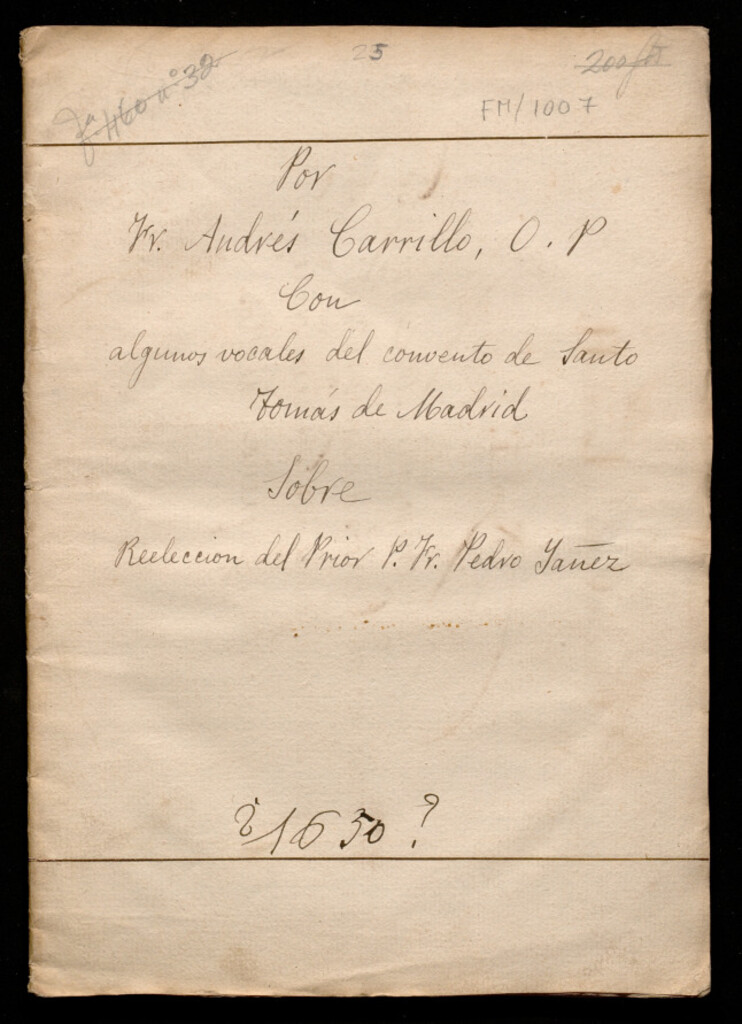 25
FM/1007
Por
Fr. Andrés Carrillo, O. P
Con
algunos vocales del convento de Santo
Tomás de Madrid
Sobre
Reeleccion del Prior P. Fr. Pedro Yañez
¿1650?